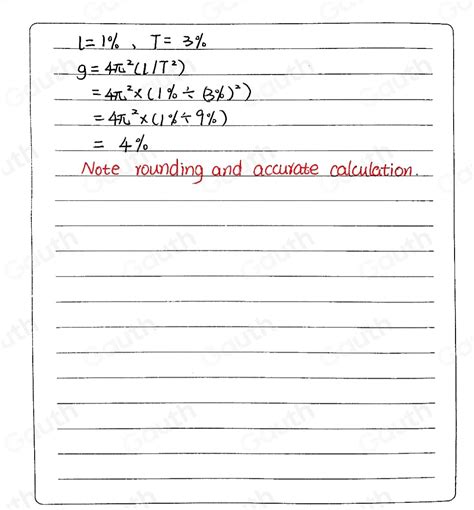 l=1%、T=3%
g=4π²(l/T²)
=4π²×(1%÷(3%)²)
=4π²×(1%÷9%)
=4%
Note rounding and accurate calculation.
Gauth